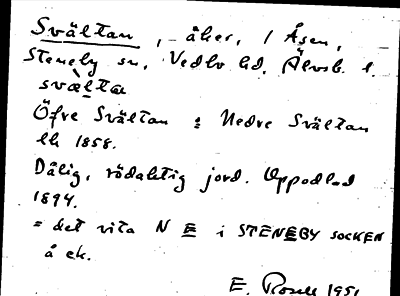 Svältan, åker, 1 Åsen,
Steneby sn, Vedbo hd, Älvsb. l.
svælta
Öfre Svältan : Nedre Svältan
lh 1858.
Dålig, rödaktig jord. Uppodlad
1894.
= det vita N E i STENEBY SOCKEN
å ek.
E. Rosell 1951